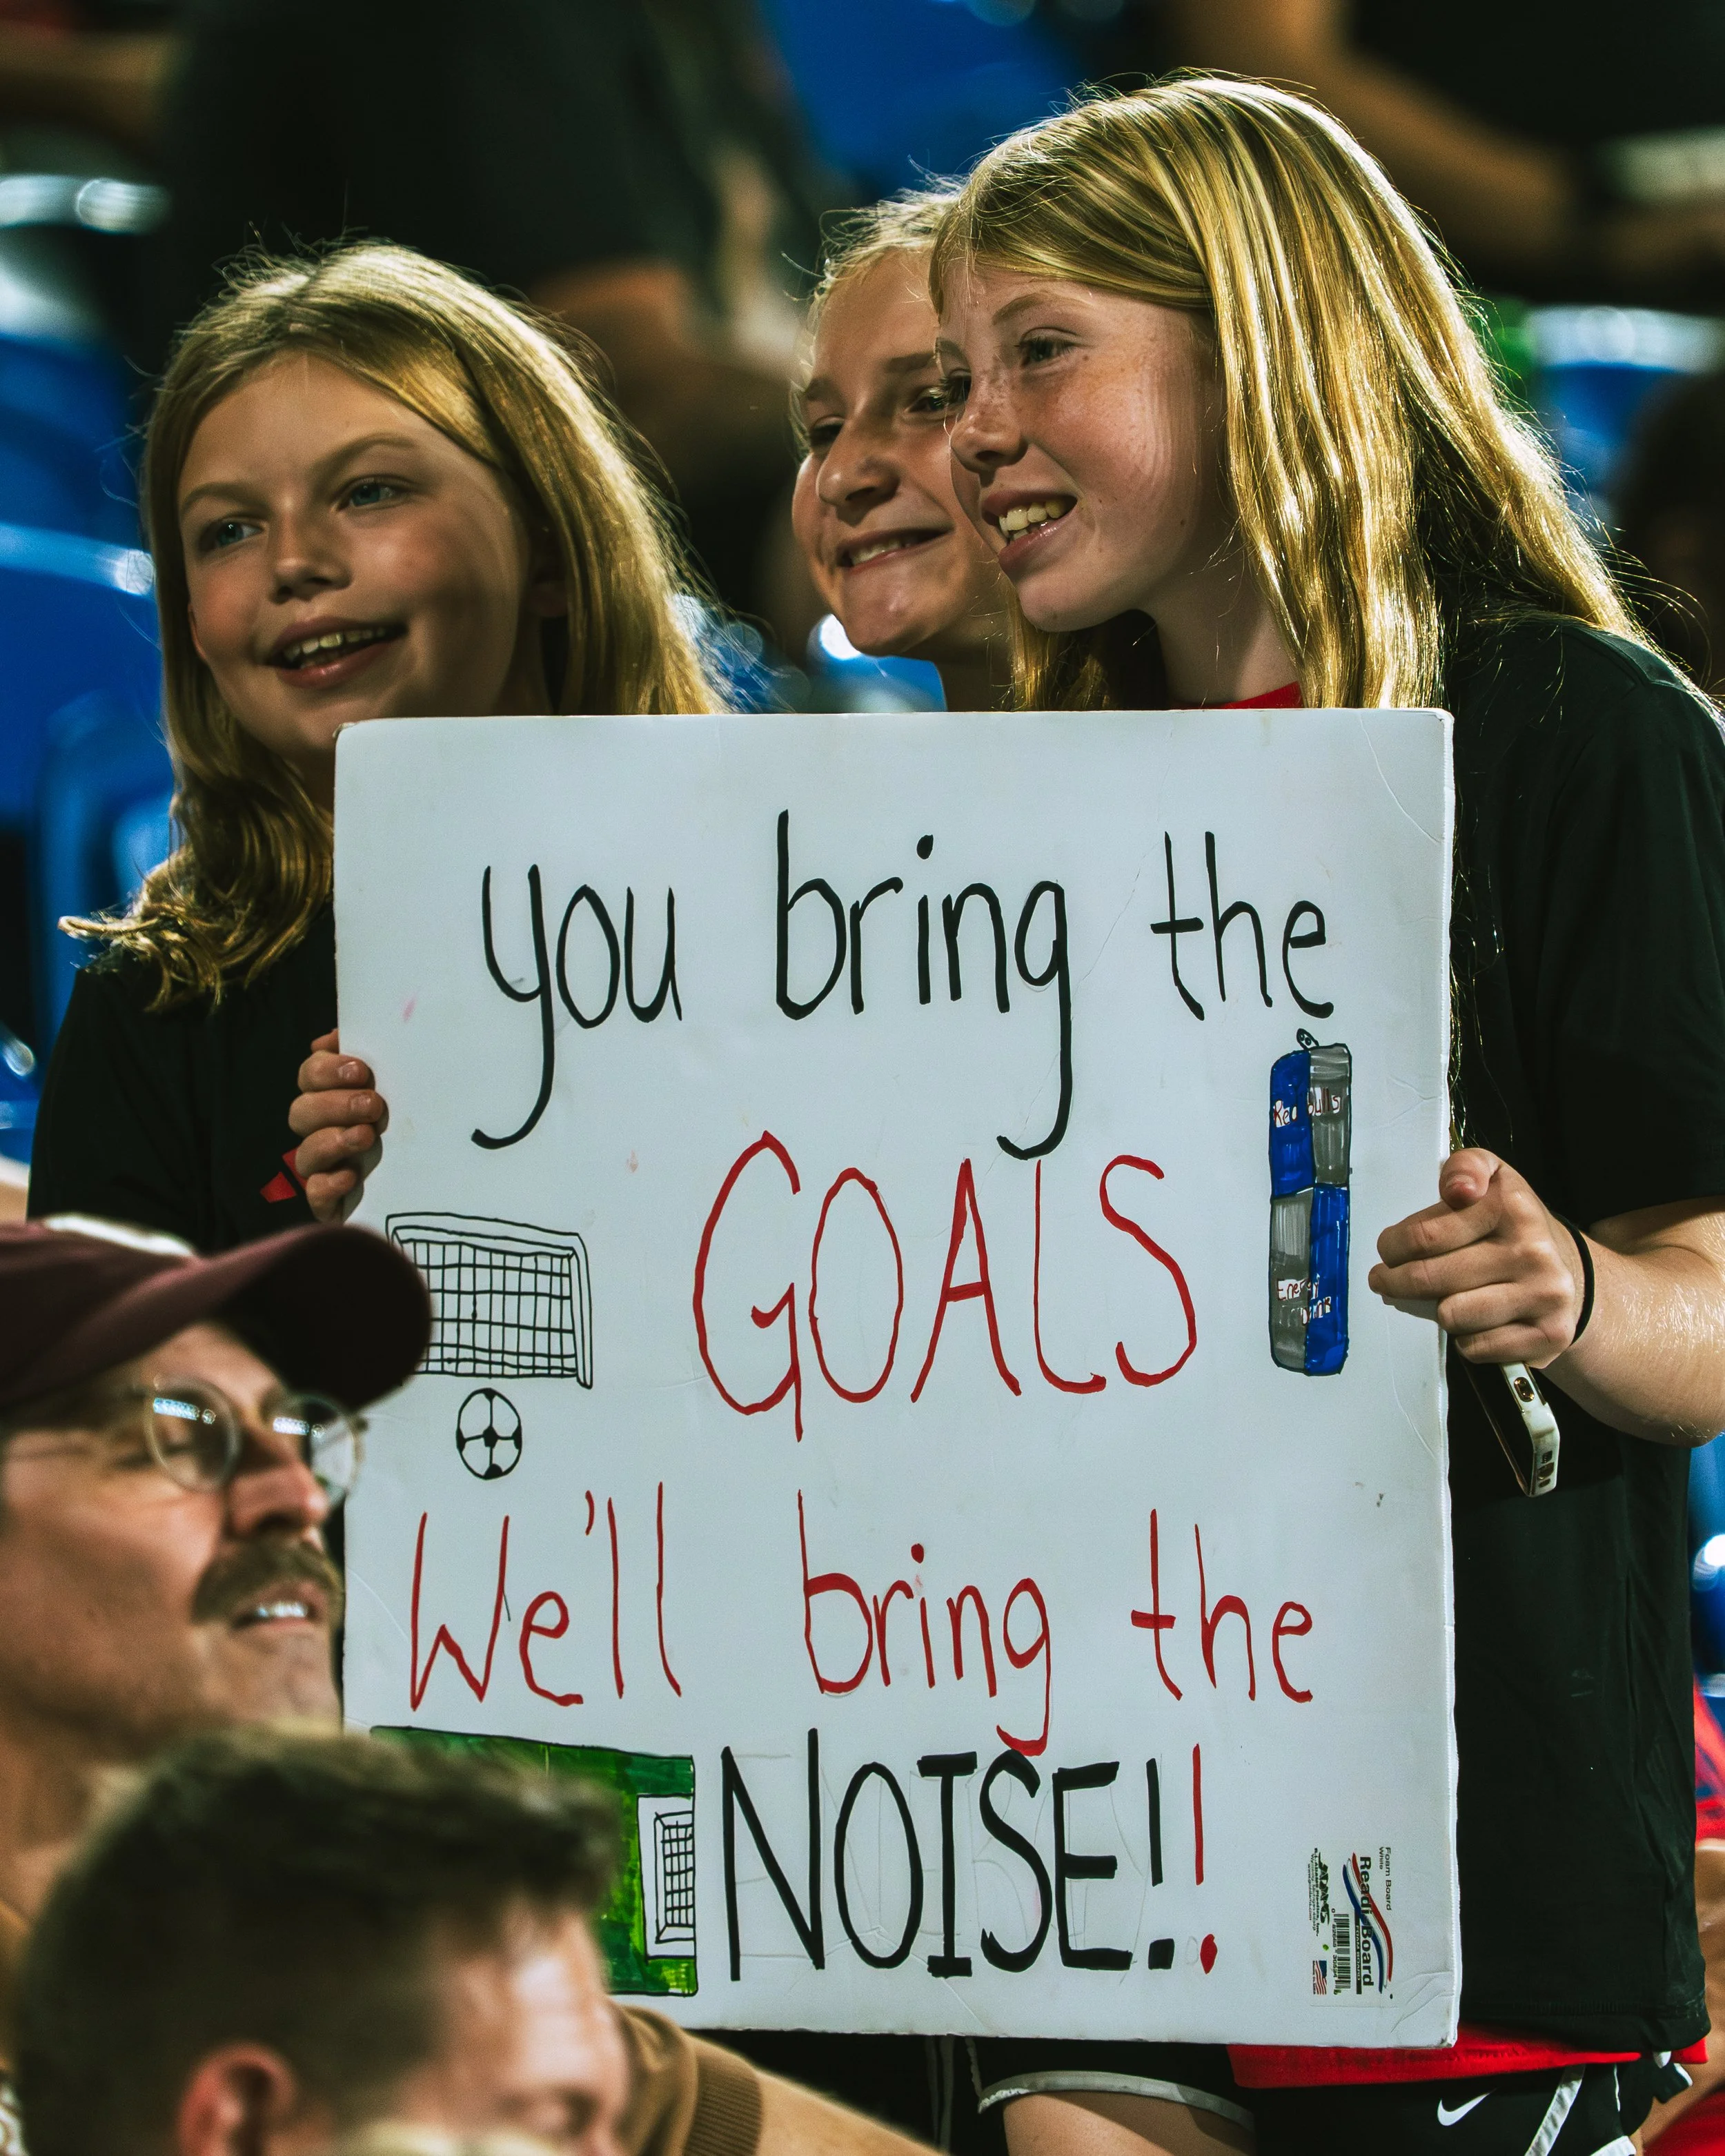 you bring the
Red Bulls
GOALS
We'll bring the
NOISE!!
Foam Board
White
Readi-Board